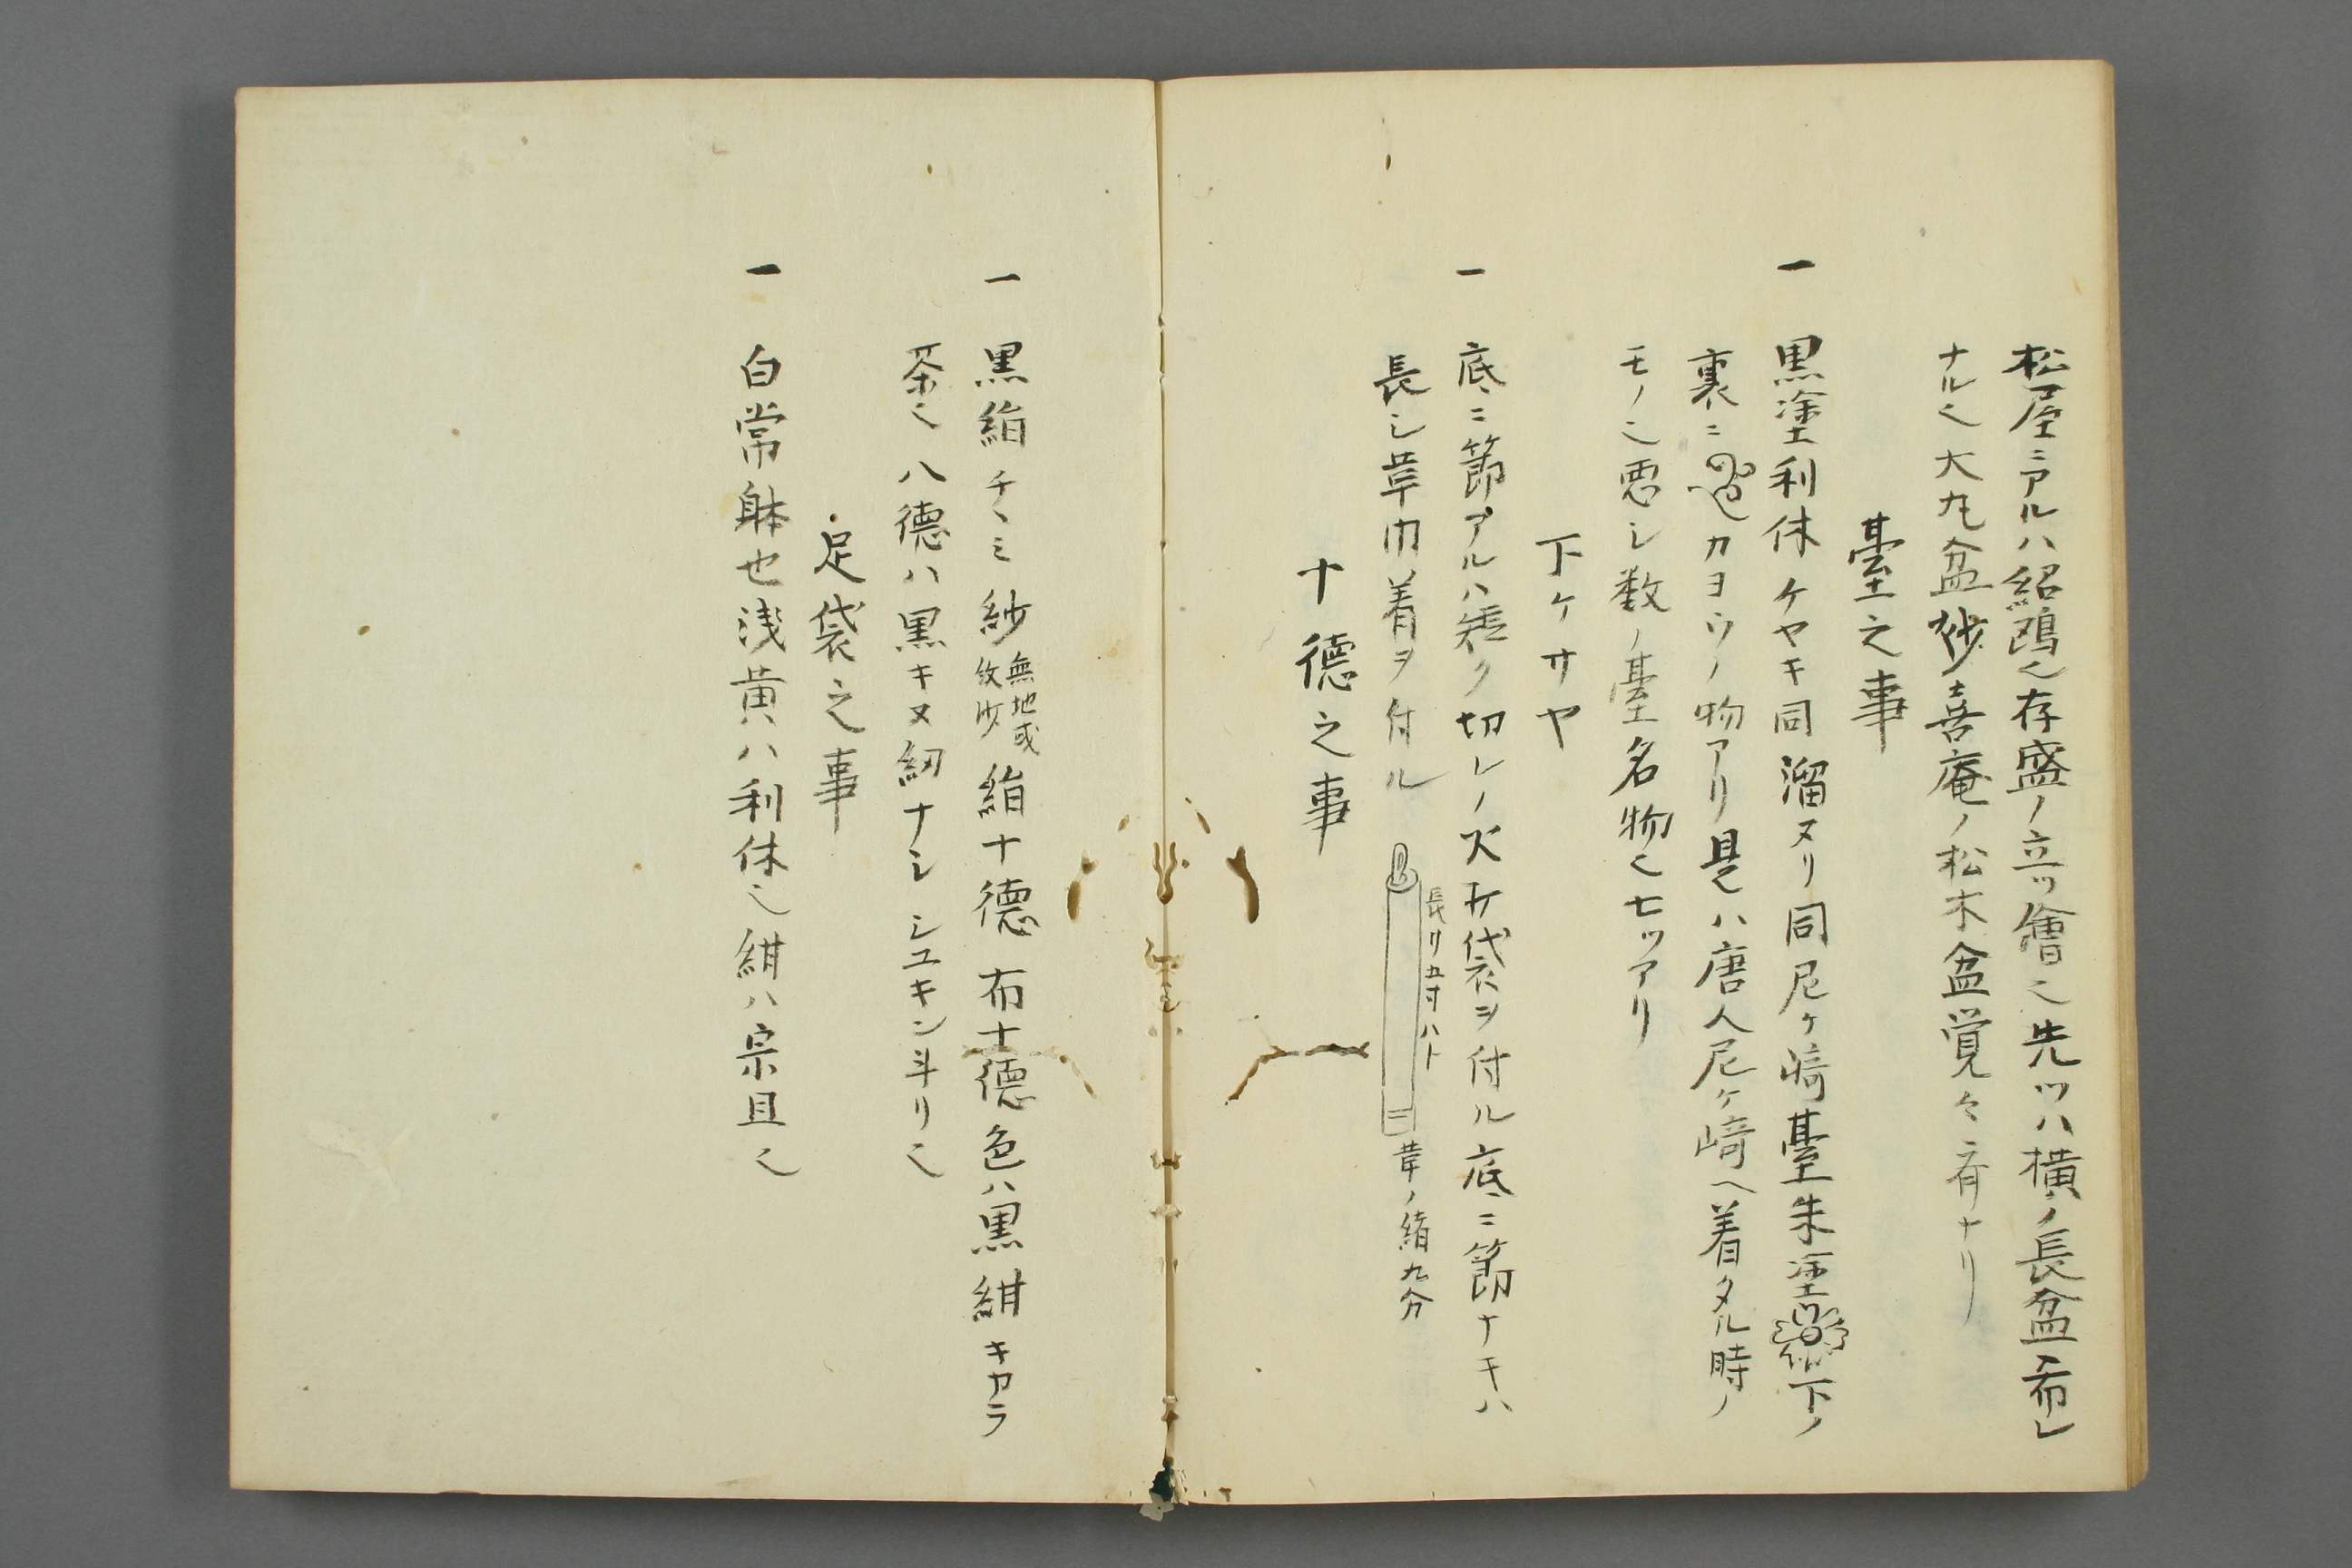 松屋ニアルハ紹鴎也存盛ノ立ツ繪也先ツハ横ノ長盆希レ
ナル也大丸盆妙喜庵ノ松木盆覚々斎ナリ
臺之事
一 黒塗利休ケヤキ同溜ヌリ同尼ケ崎臺朱塗下ノ
裏ニカヨウノ物アリ是ハ唐人尼ケ崎へ着タル時ノ
モノ也悪シ数ノ臺名物也七ツアリ
下ケサヤ
一 底ニ節アルハ短ク切レノ火打袋ヲ付ル底ニ節ナキハ
長シ革巾着ヲ付ル
長リ五寸ハト
革ノ緒九分
十德之事
一 黒絹チヽミ紗無地或紋紗絹十德布十德色ハ黒紺キカラ
茶也八德ハ黒キヌ紐ナシシユキン斗リ也
足袋之事
一 白常躰也浅黄ハ利休也紺ハ宗旦也